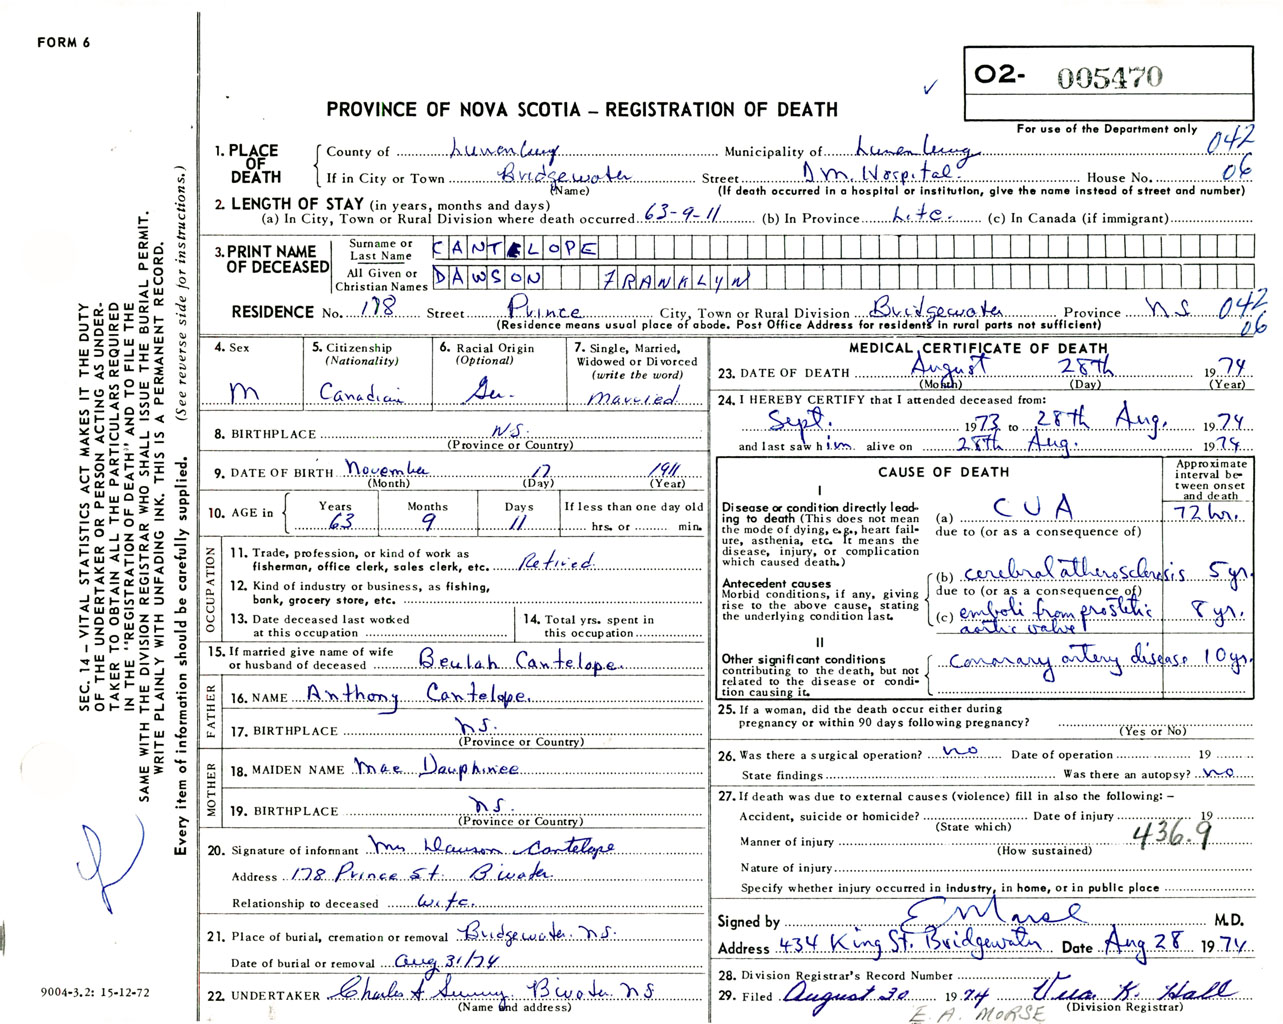 FORM 6
O2- 005470
PROVINCE OF NOVA SCOTIA – REGISTRATION OF DEATH
For use of the Department only
042
06
1. PLACE OF DEATH
County of Lunenburg Municipality of Lunenburg
If in City or Town Bridgewater Street D.M. Hospital House No.
(Name) (If death occurred in a hospital or institution, give the name instead of street and number)
2. LENGTH OF STAY (in years, months and days)
(a) In City, Town or Rural Division where death occurred 63-9-11 (b) In Province Life (c) In Canada (if immigrant)
3. PRINT NAME OF DECEASED
Surname or Last Name CANTELOPE
All Given or Christian Names DAWSON FRANKLYN
RESIDENCE No. 178 Street Prince City, Town or Rural Division Bridgewater Province N.S. 042
06
(Residence means usual place of abode. Post Office Address for residents in rural parts not sufficient)
4. Sex
M
5. Citizenship
(Nationality)
Canadian
6. Racial Origin
(Optional)
Ger.
7. Single, Married,
Widowed or Divorced
(write the word)
Married
8. BIRTHPLACE N.S.
(Province or Country)
9. DATE OF BIRTH November 17 1911
(Month) (Day) (Year)
10. AGE in
Years Months Days If less than one day old
63 9 11 hrs. or min.
OCCUPATION
11. Trade, profession, or kind of work as
fisherman, office clerk, sales clerk, etc. Retired
12. Kind of industry or business, as fishing,
bank, grocery store, etc.
13. Date deceased last worked
at this occupation
14. Total yrs. spent in
this occupation
15. If married give name of wife
or husband of deceased Beulah Cantelope
FATHER
16. NAME Anthony Cantelope.
17. BIRTHPLACE N.S.
(Province or Country)
MOTHER
18. MAIDEN NAME Mae Dauphinee
19. BIRTHPLACE N.S.
(Province or Country)
20. Signature of informant Mrs Dawson Cantelope
Address 178 Prince St. B'water
Relationship to deceased Wife
21. Place of burial, cremation or removal Bridgewater N.S.
Date of burial or removal Aug 31/74
22. UNDERTAKER Charles A B'water NS
(Name and address)
MEDICAL CERTIFICATE OF DEATH
23. DATE OF DEATH August 28th 1974
(Month) (Day) (Year)
24. I HEREBY CERTIFY that I attended deceased from:
Sept. 1973 to 28th Aug. 1974
and last saw him alive on 28th Aug. 1974
CAUSE OF DEATH
Approximate
interval be-
tween onset
and death
I
Disease or condition directly lead-
ing to death (This does not mean
the mode of dying, e.g., heart fail-
ure, asthenia, etc. It means the
disease, injury, or complication
which caused death.)
(a) CVA 72 hr.
due to (or as a consequence of)
Antecedent causes
Morbid conditions, if any, giving
rise to the above cause, stating
the underlying condition last.
(b) cerebral atherosclerosis 5 yr.
due to (or as a consequence of)
(c) emboli from prostetic 8 yr.
aortic valve
II
Other significant conditions
contributing to the death, but not
related to the disease or condi-
tion causing it.
coronary artery disease 10 yr.
25. If a woman, did the death occur either during
pregnancy or within 90 days following pregnancy?
(Yes or No)
26. Was there a surgical operation? no Date of operation 19
State findings Was there an autopsy? no
27. If death was due to external causes (violence) fill in also the following: –
Accident, suicide or homicide? Date of injury 19
(State which)
436.9
Manner of injury
(How sustained)
Nature of injury
Specify whether injury occurred in industry, in home, or in public place
Signed by E Morse M.D.
Address 434 King St. Bridgewater Date Aug 28 1974
28. Division Registrar's Record Number
29. Filed August 30 1974 Vera K. Hall
(Division Registrar)
E. A. MORSE
SEC. 14 – VITAL STATISTICS ACT MAKES IT THE DUTY
OF THE UNDERTAKER OR PERSON ACTING AS UNDER-
TAKER TO OBTAIN ALL THE PARTICULARS REQUIRED
IN THE "REGISTRATION OF DEATH" AND TO FILE THE
SAME WITH THE DIVISION REGISTRAR WHO SHALL ISSUE THE BURIAL PERMIT.
WRITE PLAINLY WITH UNFADING INK. THIS IS A PERMANENT RECORD.
Every item of information should be carefully supplied. (See reverse side for instructions.)
9004-3.2: 15-12-72